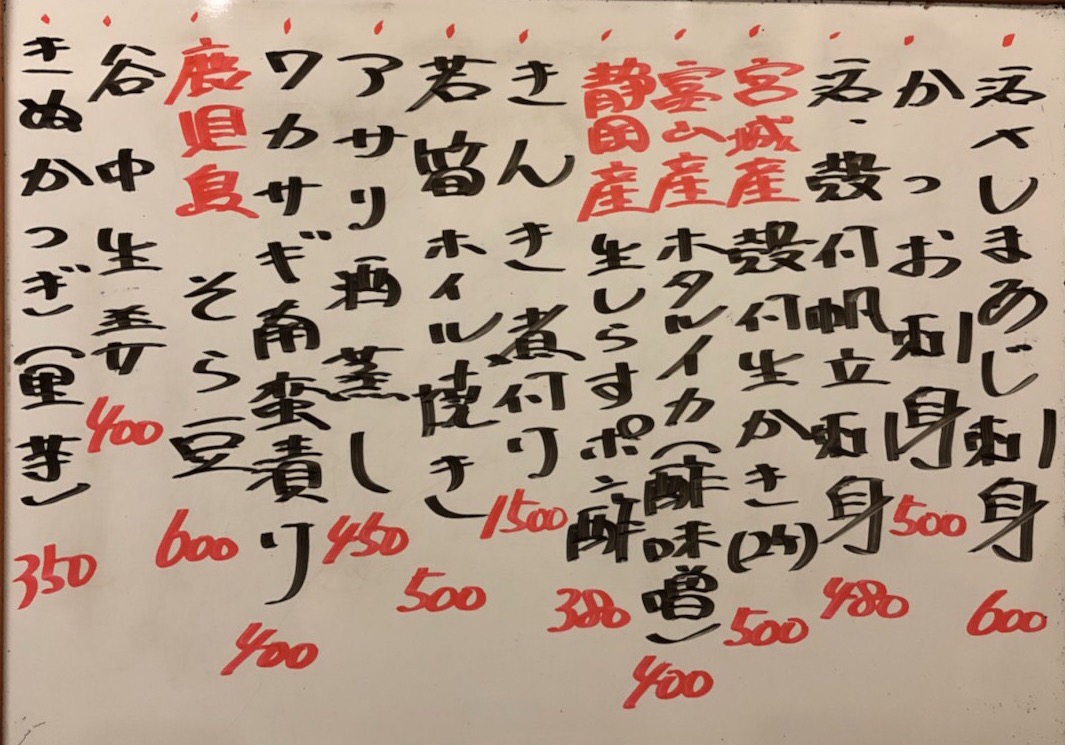 活〆しまあじ刺身 600
かつお刺身 500
活・殻付帆立刺身 480
宮城産 殻付生かき(2ケ) 500
富山産 ホタルイカ(酢味噌) 400
静岡産 生しらすポン酢 380
きんき煮付け 1500
若筍ホイル焼き 500
アサリ酒蒸し 450
ワカサギ南蛮漬け 400
鹿児島 そら豆 600
谷中生姜 400
きぬかつぎ(里芋) 350